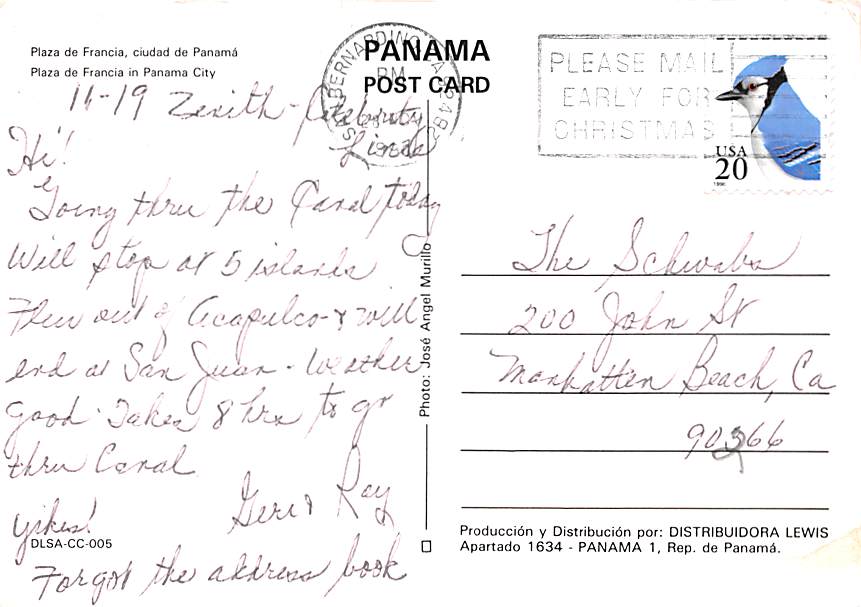 Plaza de Francia, ciudad de Panamá
Plaza de Francia in Panama City
PANAMA
POST CARD
SAN BERNARDINO CA
PM
PLEASE MAIL
EARLY FOR
CHRISTMAS
USA
20
1996
11-19 Zenith - Celebrity
Lines
Hi!
Going thru the Canal today
Will stop at 5 islands
Flew out of Acapulco - & will
end at San Juan - Weather
good. Takes 8 hrs to go
thru Canal
Geri & Ray
Yikes!
Forgot the address book
DLSA-CC-005
Photo: José Angel Murillo
The Schwabs
200 John St
Manhatten Beach, Ca
90266
Producción y Distribución por: DISTRIBUIDORA LEWIS
Apartado 1634 - PANAMA 1, Rep. de Panamá.